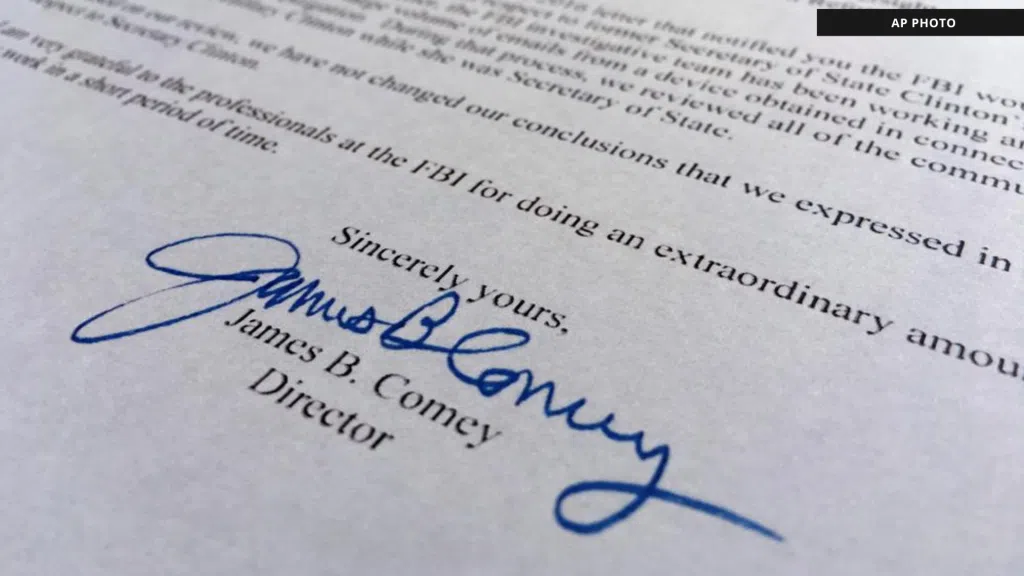 AP PHOTO
letter that notified you the FBI wou
respect to former Secretary of State Clinton's
the FBI investigative team has been working ar
volume of emails from a device obtained in connec
During that process, we reviewed all of the commu
Hillary Clinton while she was Secretary of State.
on our review, we have not changed our conclusions that we expressed in
respect to Secretary Clinton.
am very grateful to the professionals at the FBI for doing an extraordinary amou
work in a short period of time.
Sincerely yours,
James B Comey
James B. Comey
Director